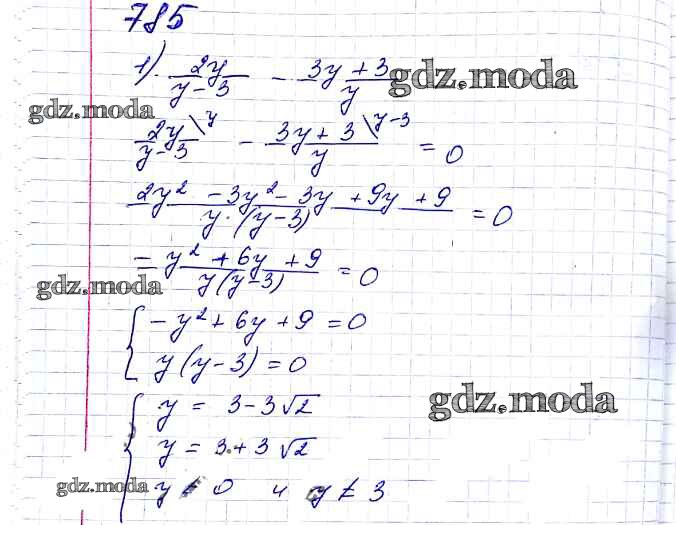 785
1). 2y/(y-3) - (3y+3)/y gdz.moda
gdz.moda
2y\y/(y-3) - (3y+3)\y-3/y = 0
(2y² - 3y² - 3y + 9y + 9)/(y·(y-3)) = 0
(-y² + 6y + 9)/(y(y-3)) = 0
gdz.moda
{ -y² + 6y + 9 = 0
y(y-3) = 0
{ y = 3 - 3√2
gdz.moda
y = 3 + 3√2
gdz.moda
y ≠ 0 и y ≠ 3